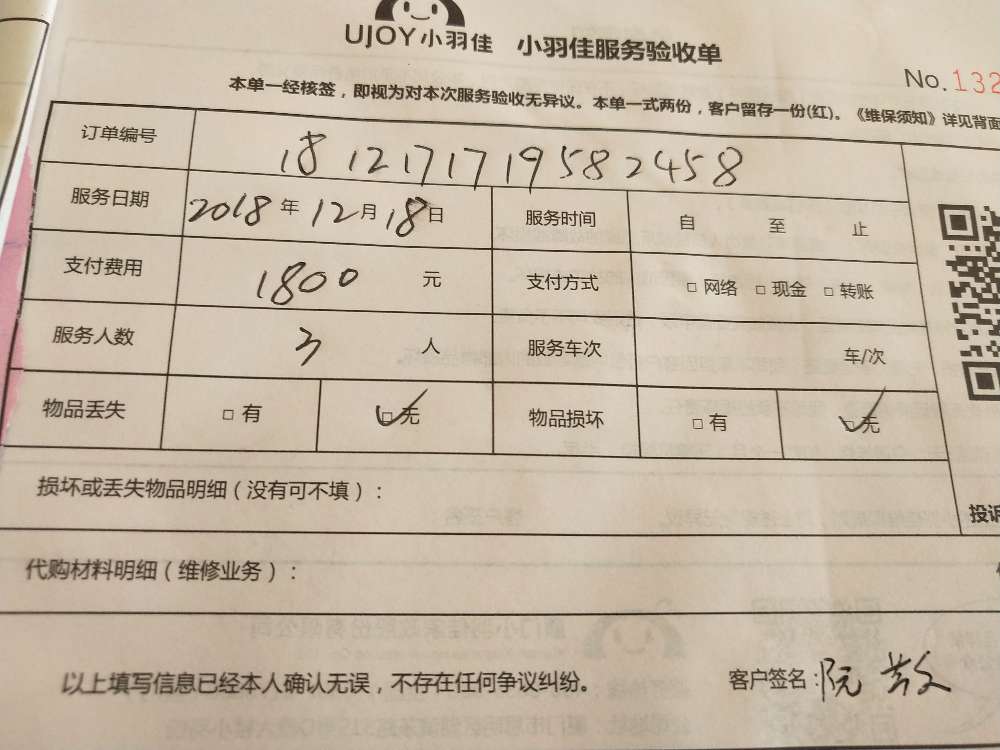 UJOY小羽佳 小羽佳服务验收单
No.132
本单一经核签，即视为对本次服务验收无异议。本单一式两份，客户留存一份(红)。《维保须知》详见背面
订单编号 1812171719582458
服务日期 2018年12月18日 服务时间 自 至 止
支付费用 1800 元 支付方式 □网络 □现金 □转账
服务人数 3 人 服务车次 车/次
物品丢失 □有 ☑无 物品损坏 □有 ☑无
损坏或丢失物品明细（没有可不填）：
投诉
代购材料明细（维修业务）：
以上填写信息已经本人确认无误，不存在任何争议纠纷。 客户签名：阮